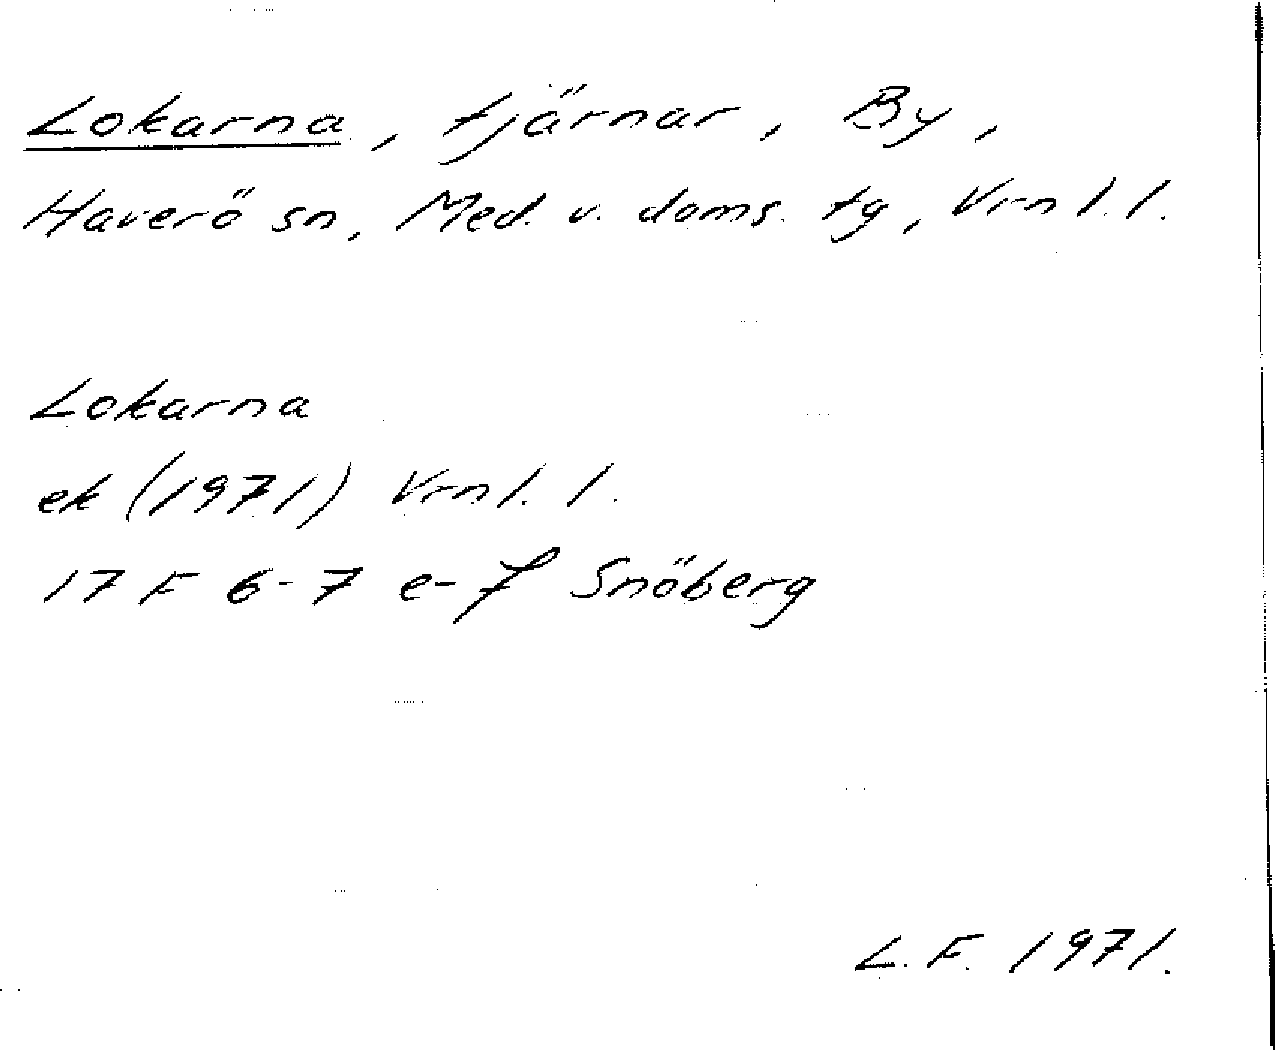 Lokarna, tjärnar, By,
Haverö sn, Med. v. doms. tg, Vrnl. l.
Lokarna
ek (1971) Vrnl. l.
17 F 6-7 e-f Snöberg
L. F. 1971.